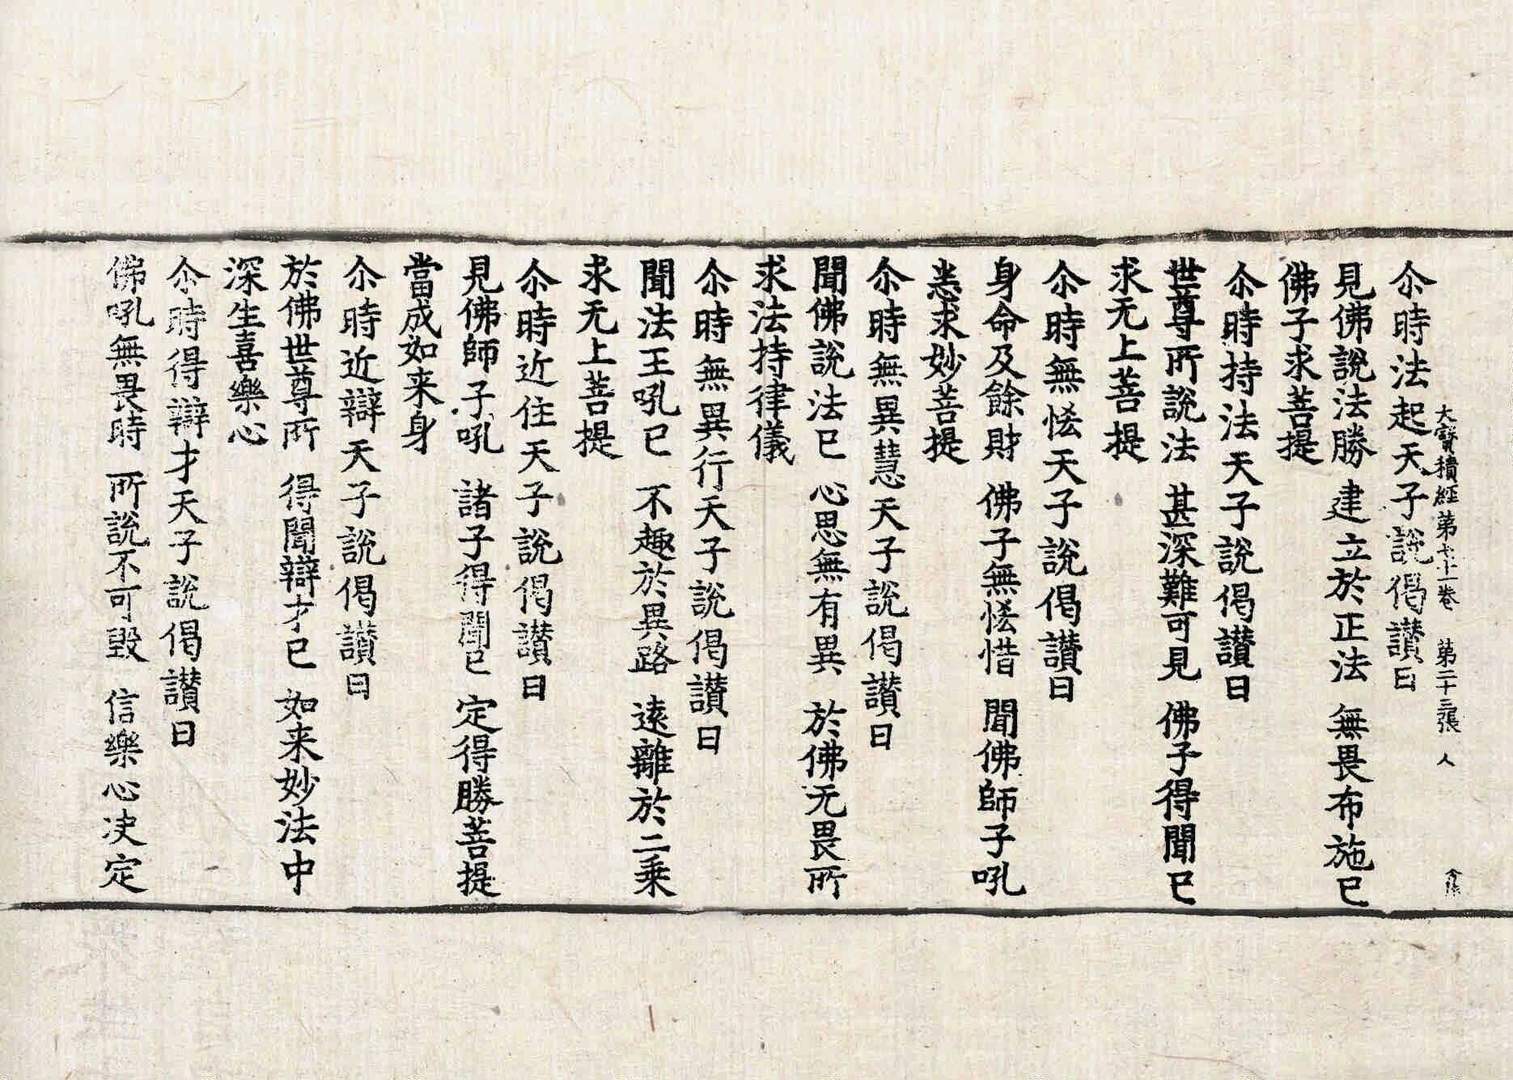 大寶積經第七十一卷　第二十三張　人
尒時法起天子說偈讃曰
見佛說法勝　建立於正法　無畏布施已
佛子求菩提
尒時持法天子說偈讃曰
世尊所說法　甚深難可見　佛子得聞已
求无上菩提
尒時無悋天子說偈讃曰
身命及餘財　佛子無悋惜　聞佛師子吼
悉求妙菩提
尒時無異慧天子說偈讃曰
聞佛說法已　心思無有異　於佛无畏所
求法持律儀
尒時無異行天子說偈讃曰
聞法王吼已　不趣於異路　遠離於二乘
求无上菩提
尒時近住天子說偈讃曰
見佛師子吼　諸子得聞已　定得勝菩提
當成如来身
尒時近辯天子說偈讃曰
於佛世尊所　得聞辯才已　如来妙法中
深生喜樂心
尒時得辯才天子說偈讃曰
佛吼無畏時　所說不可毀　信樂心决定